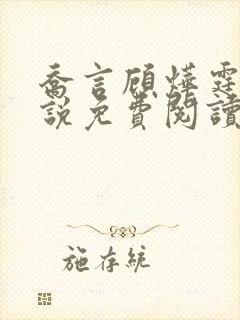 喬言顧燁霆
說免費閱讀
施存統